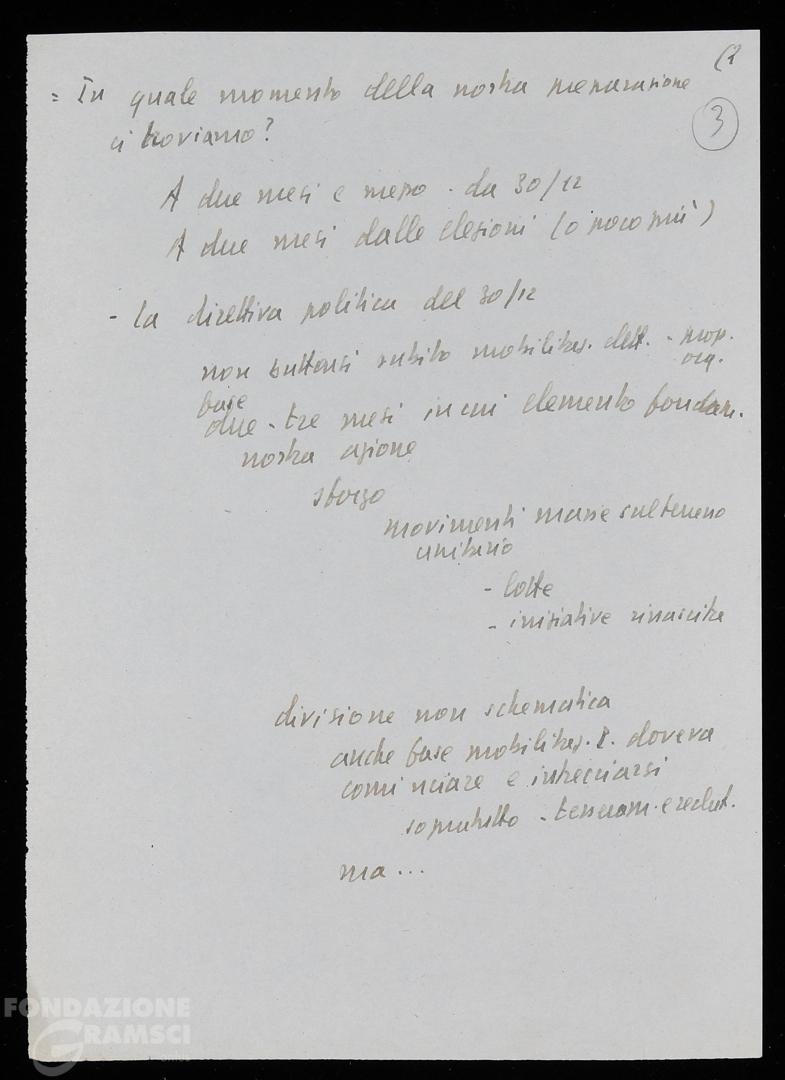 (2
3
= In quale momento della nostra preparazione
ci troviamo?
A due mesi e mezzo - da 30/12
A due mesi dalle elezioni (o poco più)
- la direttiva politica del 30/12
non buttarsi subito mobilitaz. elett. - prop.
org.
fase
due - tre mesi in cui elemento fondam.
nostra azione
sforzo
movimenti masse sul terreno
unitario
- lotte
- iniziative rinascita
divisione non schematica
anche fase mobilitaz. doveva
cominciare e intrecciarsi
soprattutto - tesseram. e reclut.
ma...
FONDAZIONE
GRAMSCI
onlus